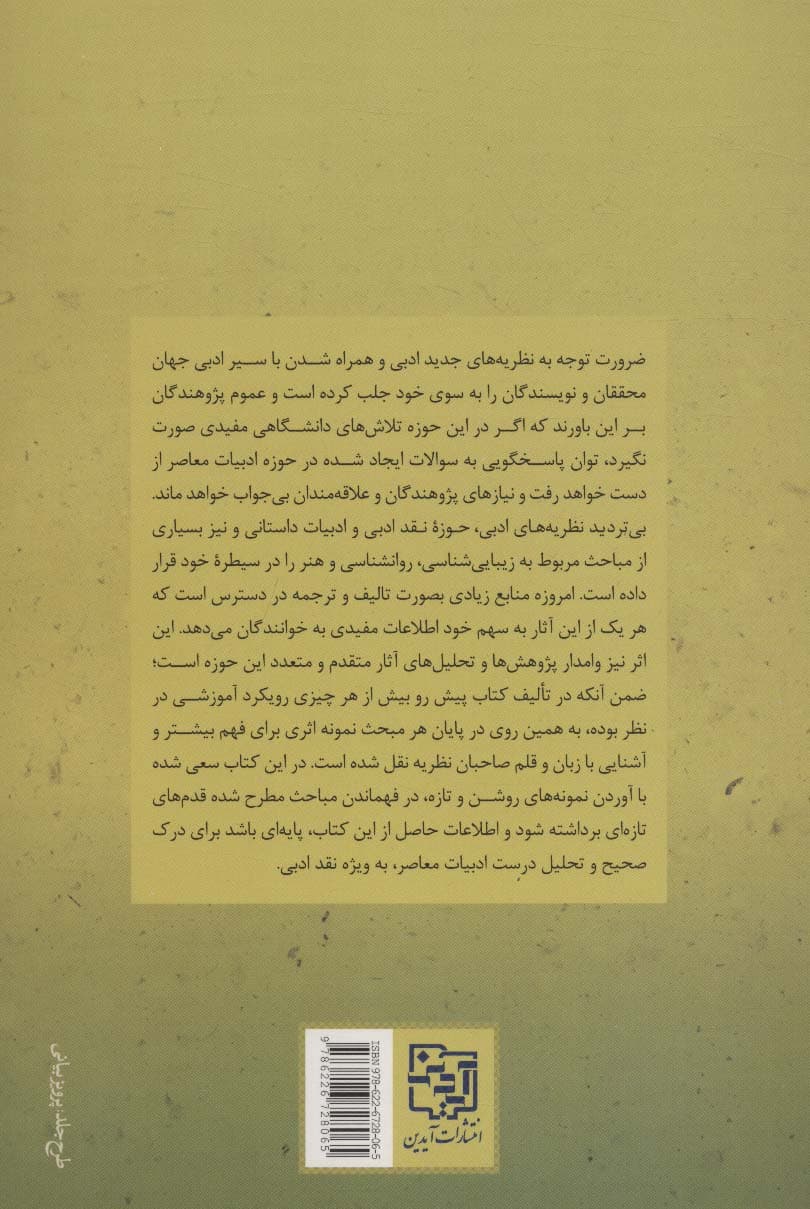 ضرورت توجه به نظریه‌های جدید ادبی و همراه شدن با سیر ادبی جهان
محققان و نویسندگان را به سوی خود جلب کرده است و عموم پژوهندگان
بر این باورند که اگر در این حوزه تلاش‌های دانشگاهی مفیدی صورت
نگیرد، توان پاسخگویی به سوالات ایجاد شده در حوزه ادبیات معاصر از
دست خواهد رفت و نیازهای پژوهندگان و علاقه‌مندان بی‌جواب خواهد ماند.
بی‌تردید نظریه‌های ادبی، حوزۀ نقد ادبی و ادبیات داستانی و نیز بسیاری
از مباحث مربوط به زیبایی‌شناسی، روانشناسی و هنر را در سیطرۀ خود قرار
داده است. امروزه منابع زیادی بصورت تالیف و ترجمه در دسترس است که
هر یک از این آثار به سهم خود اطلاعات مفیدی به خوانندگان می‌دهد. این
اثر نیز وامدار پژوهش‌ها و تحلیل‌های آثار متقدم و متعدد این حوزه است؛
ضمن آنکه در تألیف کتاب پیش رو بیش از هر چیزی رویکرد آموزشی در
نظر بوده، به همین روی در پایان هر مبحث نمونه اثری برای فهم بیشتر و
آشنایی با زبان و قلم صاحبان نظریه نقل شده است. در این کتاب سعی شده
با آوردن نمونه‌های روشن و تازه، در فهماندن مباحث مطرح شده قدم‌های
تازه‌ای برداشته شود و اطلاعات حاصل از این کتاب، پایه‌ای باشد برای درک
صحیح و تحلیل درست ادبیات معاصر، به ویژه نقد ادبی.
آیدین
انتشارات آیدین
ISBN 978-622-6728-06-5
9 786226 728065
طرح جلد: پرویز بیانی